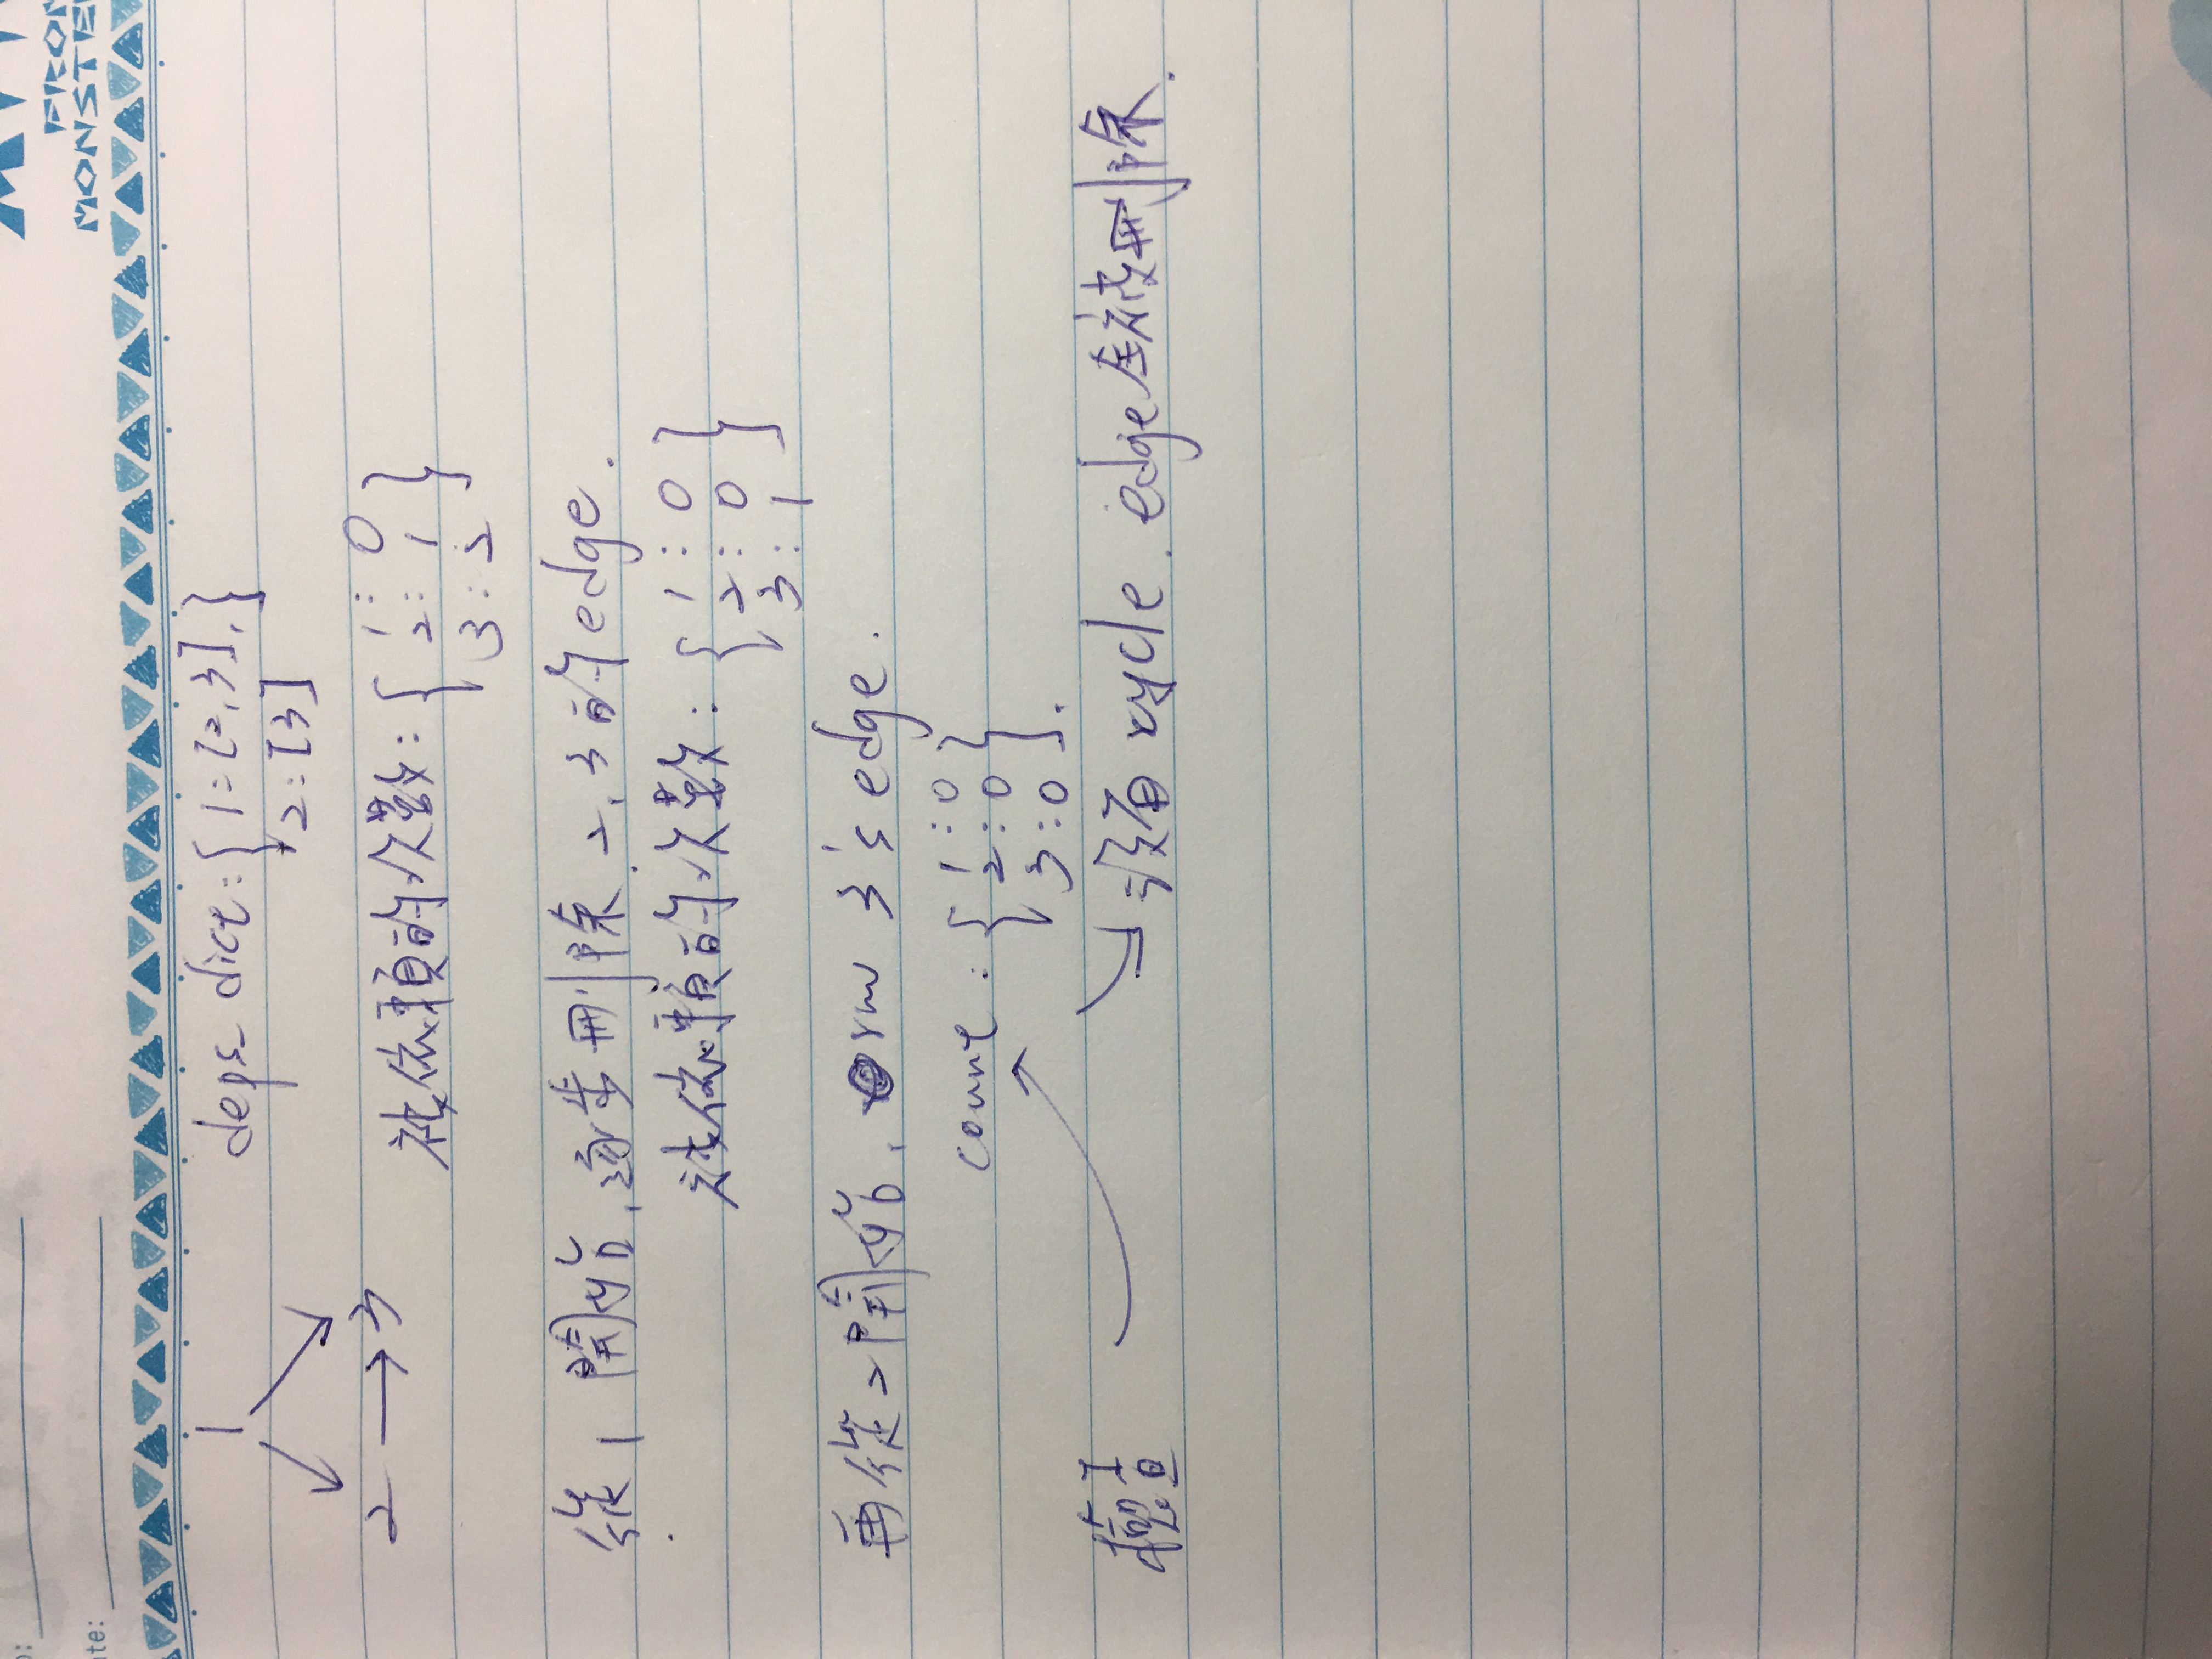 ate:
FROM
MONSTE
1
deps_dict: { 1: [2,3], }
2: [3]
2 → 3
被依賴的次數: { 1: 0
2: 1
3: 2 }
從 1 開始, 逐步刪除 2, 3 的 edge.
被依賴的次數: { 1: 0
2: 0
3: 1 }
再從 2 開始, rm 3's edge.
count: { 1:0
2:0
3:0 }.
檢查
沒有 cycle. edge 全被刪除.